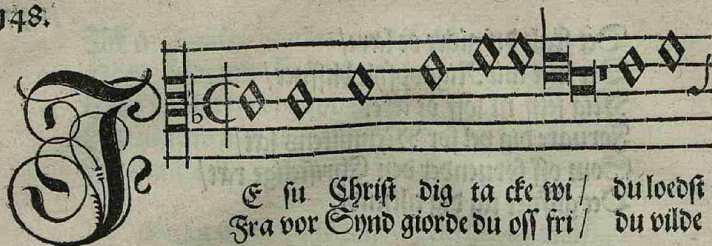 148.
J
E su Christ dig ta cke wi / du loedst
Fra vor Synd giorde du oss fri / du vilde